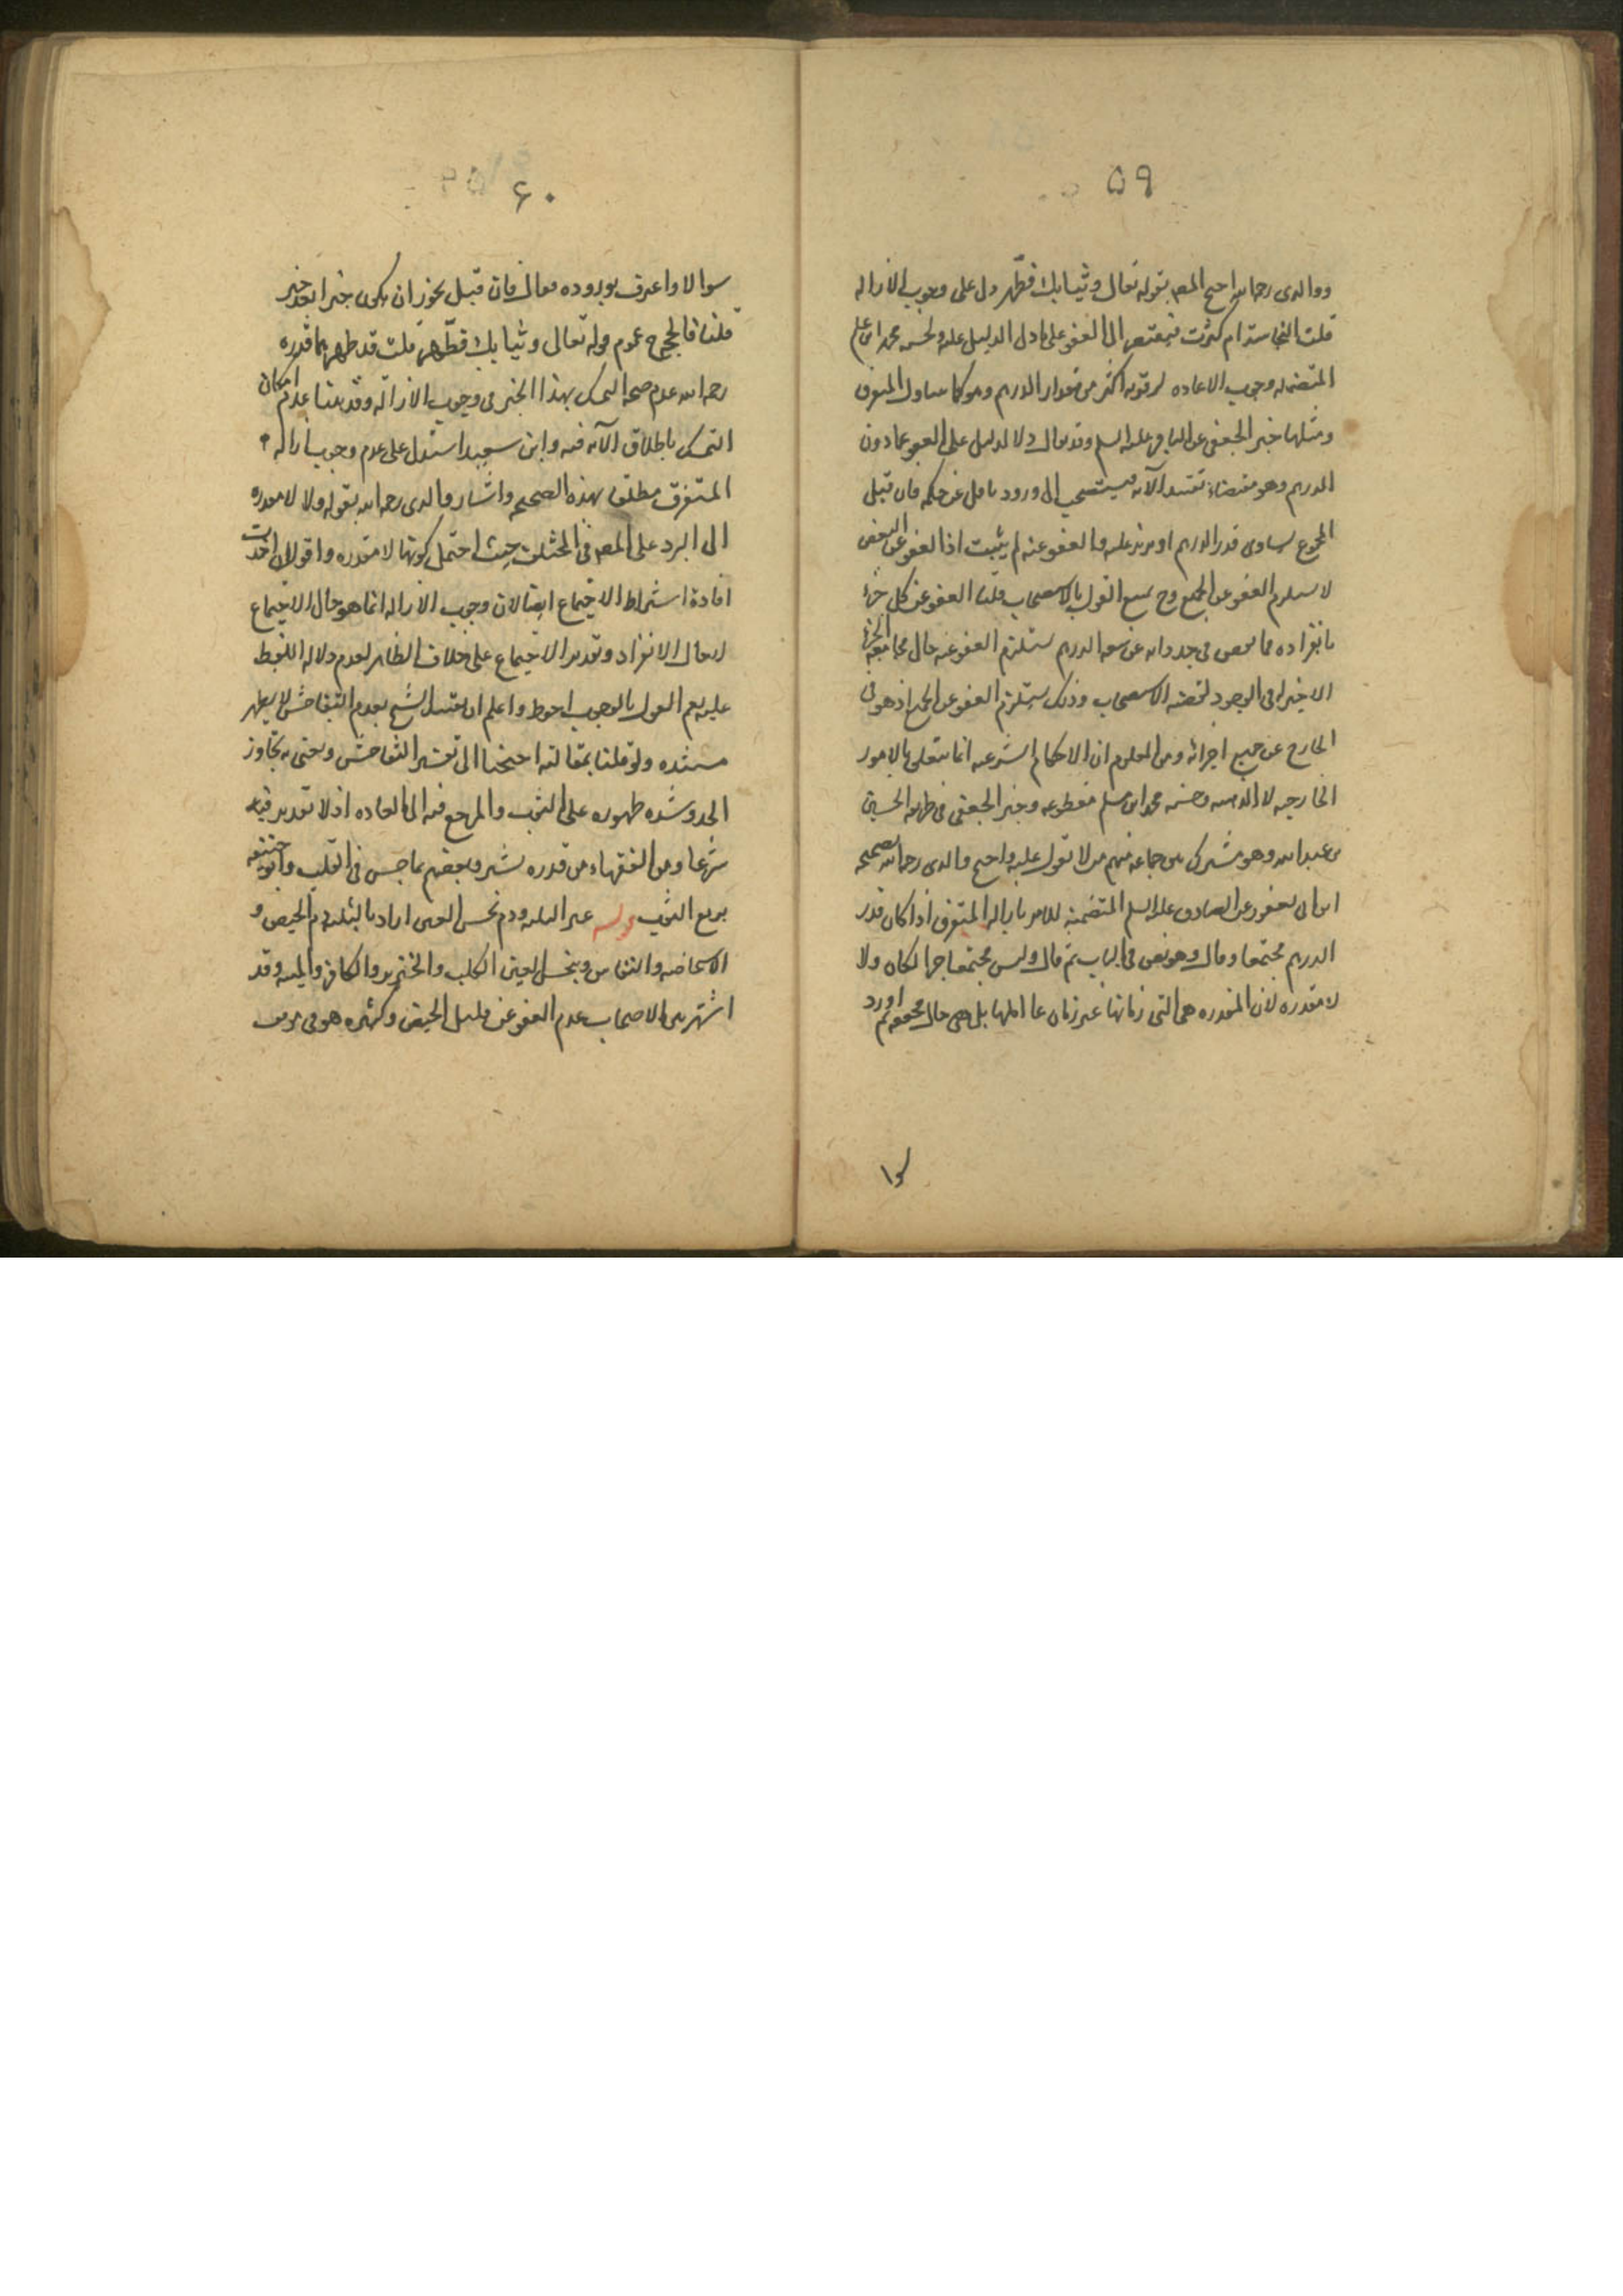 ٥٩
ووالدى رحمه الله احتج المصه بقوله تعالى وثيابك فطهر دل على وجوب الازاله
قلت النجاسة ام كثرت فيقتصر الى العفو على ما دل الدليل عليه ولحسنه محمد ابن مسلم
المتضمنه وجوب الاعاده لرؤيه اكثر من مقدار الدرهم وهو كما يتناول المتفرق
ومثلها خبر الجعفى عن الباقر عليه السلم وقد يقال دلا الدليل على العفو عما دون
الدرهم وهو مقتضاه تقييد الآيه فيستصحب الى ورود ناقل عن حكمه فان قيل
المجموع يساوى قدر الدرهم او يزيد عليه والعفو عنه لم يثبت اذ العفو عن البعض
لا يستلزم العفو عن الجميع وح يمنع القول بالاستصحاب قلنا العفو عن كل جزء
بانفراده مما نقص فى حد ذاته عن سعه الدرهم يستلزم العفو عنه حال مجامعه الجزء
الاخير له فى الوجود لقضيه الاستصحاب وذلك يستلزم العفو عن الجميع اذ هو فى
الخارج عن جميع اجزائه ومن المعلوم ان الاحكام الشرعيه انما يتعلق بالامور
الخارجيه لا الذهنيه وحسنه محمد ابن مسلم مقطوعه وخبر الجعفى فى طريقه الحسين
بن عبد الله وهو مشترك بين جماعه منهم من لا تعول عليه واحتج والدى رحمه الله بصحيحه
ابن ابى يعفور عن الصادق عليه السلم المتضمنه للامر بازاله المتفرق اذا كان قدر
الدرهم مجتمعا وقال وهو نص فى الباب ثم قال وليس مجتمعا خبرا لكان ولا
لا مقدره لان المقدره هى التى زمانها غير زمان عاملها بل هى حال محققه ثم اورد
٦٠
سوالا واعترف بوروده فقال فان قيل يجوز ان يكون خبرا بعد خبر
قلنا فالحجج عموم قوله تعالى وثيابك فطهر قلت قد ظهر بما قدره
رحمه الله عدم صحه التمسك بهذا الخبر فى وجوب الازاله وقد بينا عدم امكان
التمسك باطلاق الآيه فيه وابن سعيد استدل على عدم وجوب ازاله
المتفرق مطلقا بهذه الصحيحه واشار والدى رحمه الله بقوله ولا لا مقدره
الى الرد على المصه فى المختلف حيث احتمل كونها لا مقدره واقول ان اخذت
افادة اشتراط الاجتماع ايضا لان وجوب الازاله انما هو حال الاجتماع
لا حال الانفراد وتقدير الاجتماع على خلاف الظاهر لعدم دلاله اللفظ
عليه نعم القول بالوجوب احوط واعلم ان تقييد الشيخ بعدم التفاحش لا يظهر
مستنده ولو قلنا بمقالته احتجنا الى تفسير التفاحش ويعنى به تجاوز
الحد وشده ظهوره على الثوب والمرجع فيه الى العاده اذ لا تقدير فيه
شرعا ومن الفقهاء من قدره بشبر وبعضهم بما حبس فى القلب وابو حنيفه
بربع الثوب قوله غير الثلثه ودم نجس العين اراد بالثلثه دم الحيض و
الاستحاضه والنفاس وبنجس العين الكلب والخنزير والكافر والميته وقد
اشتهر بين الاصحاب عدم العفو عن قليل الحيض وكثيره هو فى